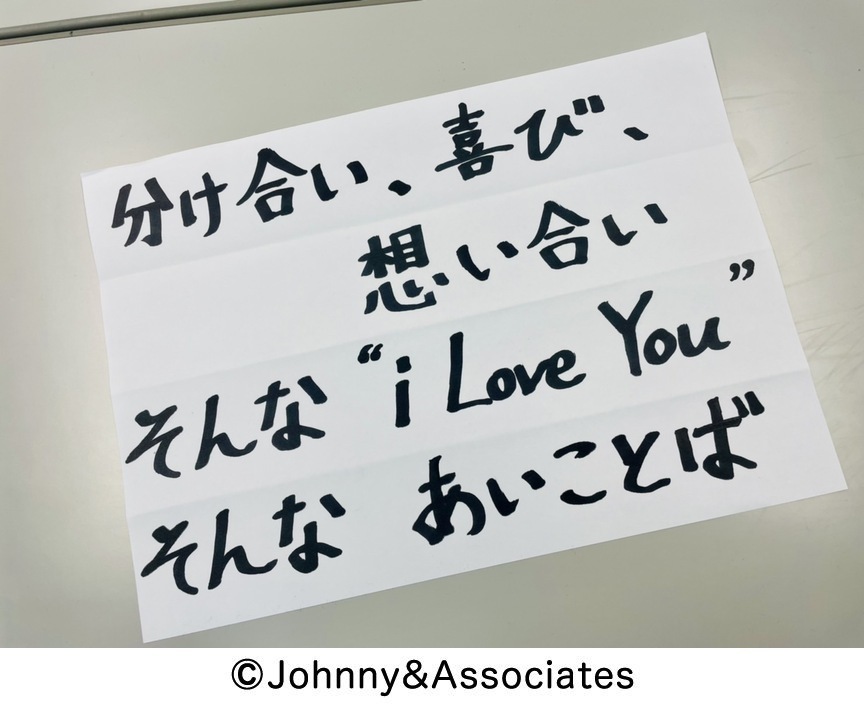 分け合い、喜び、
想い合い
そんな“i Love You”
そんな あいことば
©Johnny&Associates